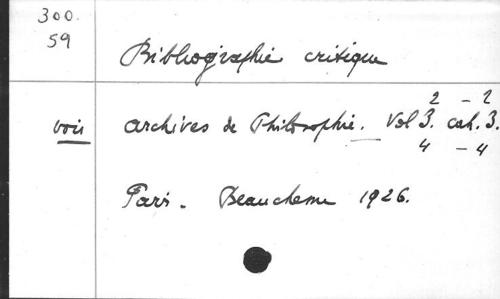 300.
59
Bibliographie critique
2 - 2
vois Archives de Philosophie. Vol 3. cah. 3.
4 - 4
Paris - Beauchesne 1926.